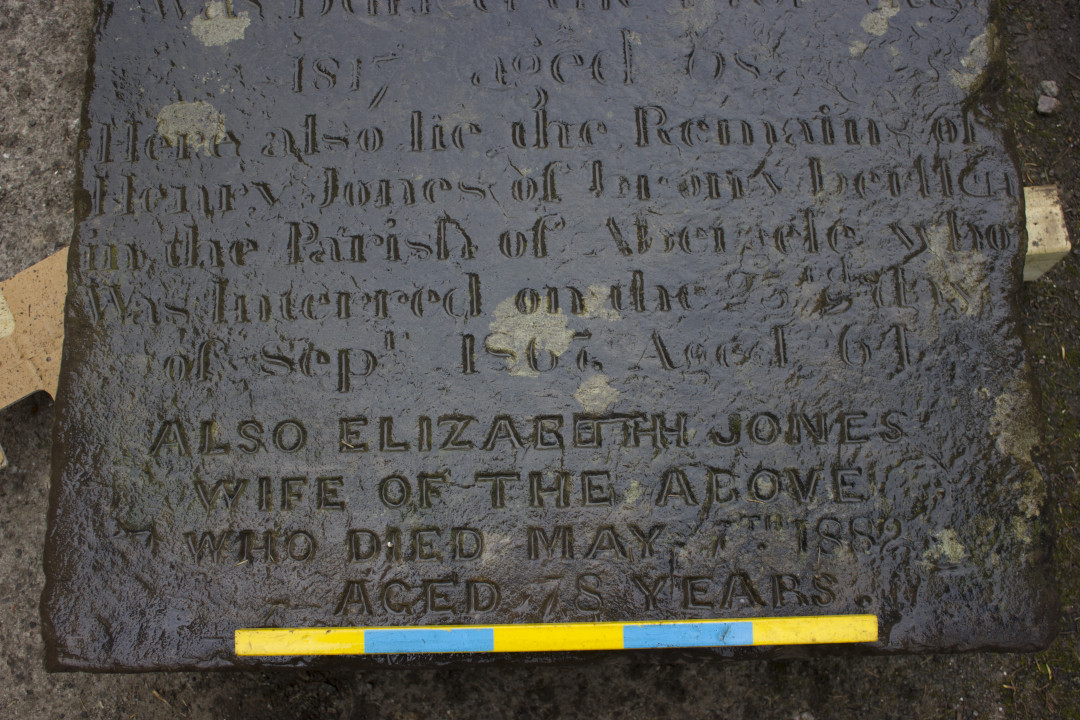 Was Buried
1817 aged 68
Here also lie the Remains of
Henry Jones of
in the Parish of Abergele who
Was Interred on the 23rd
of Sepr 1867. Aged 61.
ALSO ELIZABETH JONES
WIFE OF THE ABOVE
WHO DIED MAY 7TH 1882
AGED 78 YEARS.